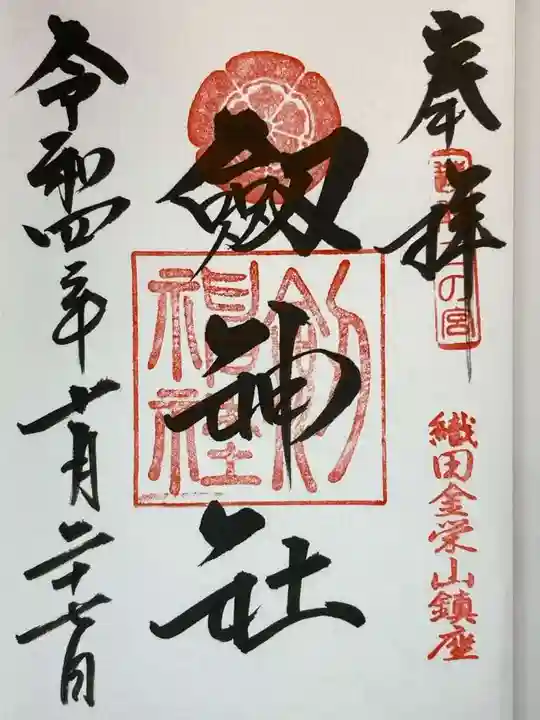 奉拝
越前二の宮
織田金栄山鎮座
劔神社
劔神社
令和四年十月二十七日